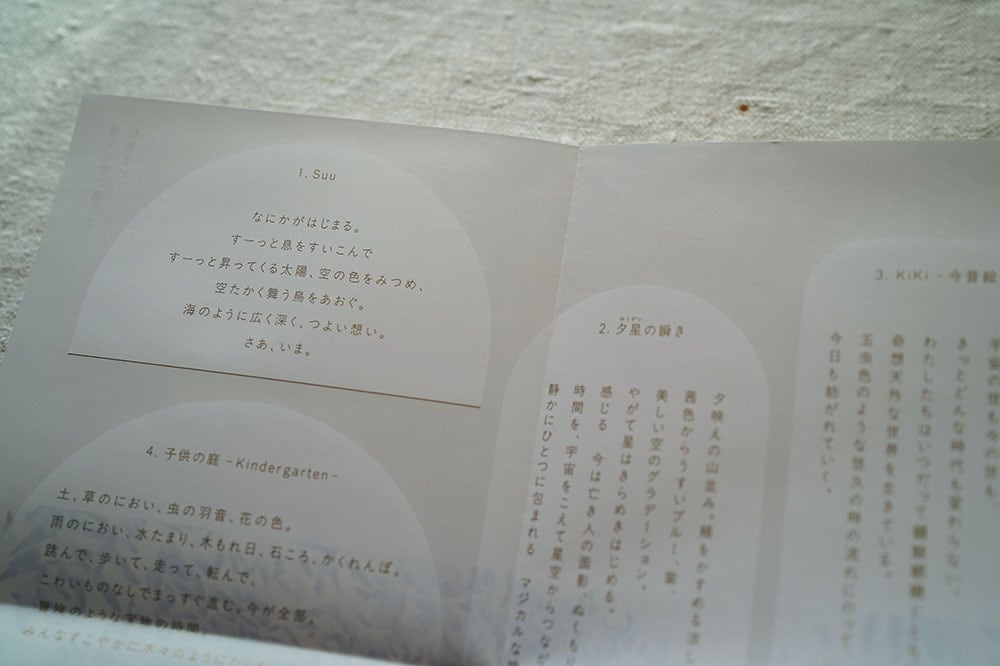 1. Suu
なにかがはじまる。
すーっと息をすいこんで
すーっと昇ってくる太陽、空の色をみつめ、
空たかく舞う鳥をあおぐ。
海のように広く深く、つよい想い。
さあ、いま。
2. 夕星の瞬き
夕映えの山並み。
茜色からうすいブルー、紫。
美しい空のグラデーション。
やがて星はきらめきはじめる。
感じる 今は亡き人の面影、ぬくも
時間を、宇宙をこえて星空からつなが
静かにひとつに包まれる マジカルな
3. KiKi - 今昔絵
きっとどんな時代も変わらない。
わたしたちはいつだって
奇想天外な世界を生きている。
玉虫色のような悠久の時の流れにのって
今日も紡がれていく。
4. 子供の庭 -Kindergarten-
土、草のにおい、虫の羽音、花の色。
雨のにおい、水たまり、木もれ日、石ころ、かくれんぼ。
跳んで、歩いて、走って、転んで、
こわいものなしでまっすぐ進む。今が全部。
冒険のような宝物の時間。
みんなすこやかに木々のように